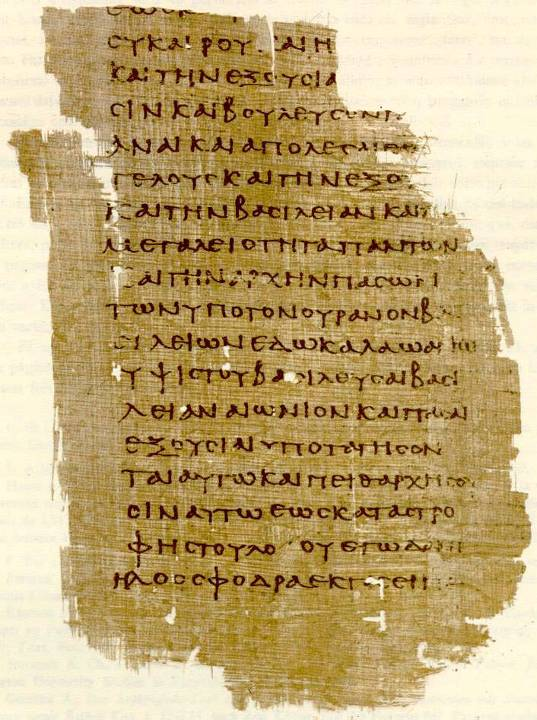 ΕΩϹΚ
ϹΥΚΑΙΡΟΥ ΑΙΗ
ΚΑΙΤΗΝΕΞΟΥϹΙΑ
ϹΙΝΚΑΙΒΟΥΛΕΥϹΟΝΤ
ΑΝΑΙΚΑΙΑΠΟΛΕϹΑΙ
ΓΕΛΟΥϹΚΑΙΤΗΝΕΞΟ
ΚΑΙΤΗΝΒΑϹΙΛΕΙΑΝΚΑΙ
ΜΕΓΑΛΕΙΟΤΗΤΑΠΑΝΤΩΝ
ΚΑΙΤΗΝΑΡΧΗΝΠΑϹΩΝ
ΤΩΝΥΠΟΤΟΝΟΥΡΑΝΟΝΒ
ϹΙΛΕΙΩΝΕΔΩΚΑΛΑΩΑΓΙΩ
ΥΨΙϹΤΟΥΒΑϹΙΛΕΥϹΑΙΒΑϹΙ
ΛΕΙΑΝΑΙΩΝΙΟΝΚΑΙΠΑϹΑΙ
ΕΞΟΥϹΙΑΙΥΠΟΤΑΓΗϹΟΝ
ΤΑΙΑΥΤΩΚΑΙΠΕΙΘΑΡΧΗϹΟΥ
ϹΙΝΑΥΤΩΕΩϹΚΑΤΑϹΤΡΟ
ΦΗϹΤΟΥΛΟ ΟΥΕΓΩΔΑΝΙ
ΗΛΟϹϹΦΟΔΡΑΕΚ